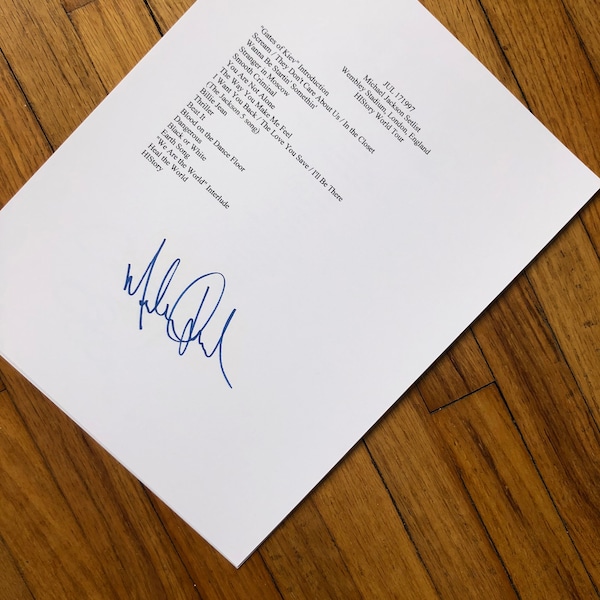 JUL 171997
Michael Jackson Setlist
Wembley Stadium, London, England
HIStory World Tour
"Gates of Kiev" Introduction
Scream / They Don't Care About Us / In the Closet
Wanna Be Startin' Somethin'
Stranger in Moscow
Smooth Criminal
You Are Not Alone
The Way You Make Me Feel
I Want You Back / The Love You Save / I'll Be There
(The Jackson 5 song)
Billie Jean
Thriller
Beat It
Blood on the Dance Floor
Dangerous
Black or White
Earth Song
"We Are the World" Interlude
Heal the World
HIStory